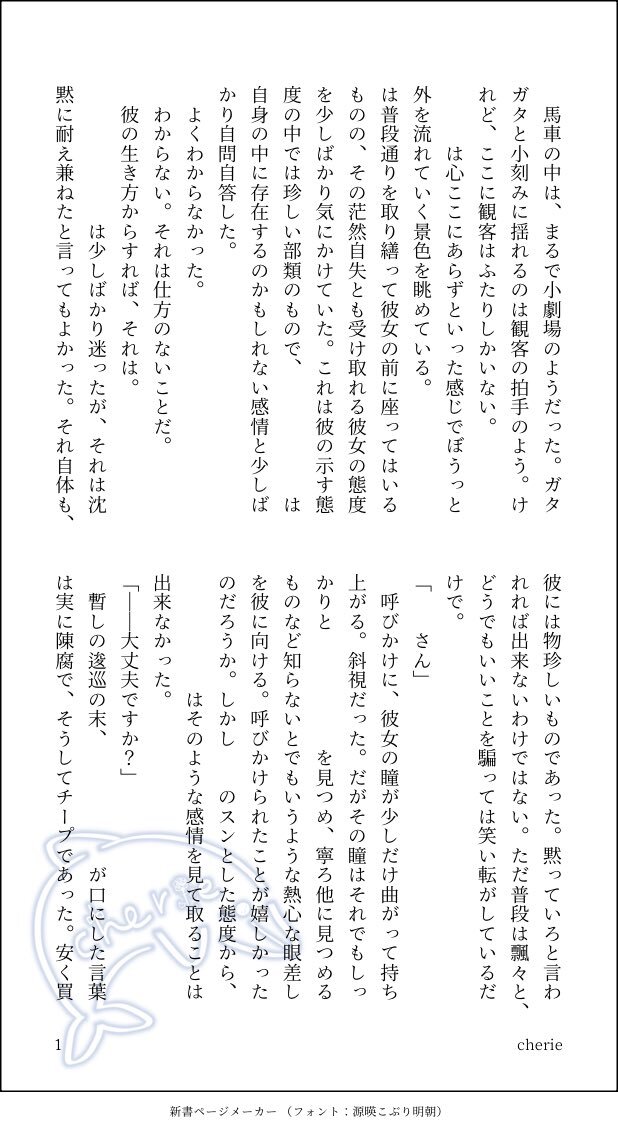 馬車の中は、まるで小劇場のようだった。ガタ
ガタと小刻みに揺れるのは観客の拍手のよう。け
れど、ここに観客はふたりしかいない。
　　　は心ここにあらずといった感じでぼうっと
外を流れていく景色を眺めている。
は普段通りを取り繕って彼女の前に座ってはいる
ものの、その茫然自失とも受け取れる彼女の態度
を少しばかり気にかけていた。これは彼の示す態
度の中では珍しい部類のもので、　　　　　　は
自身の中に存在するのかもしれない感情と少しば
かり自問自答した。
　よくわからなかった。
　わからない。それは仕方のないことだ。
　彼の生き方からすれば、それは。
　　　　　　は少しばかり迷ったが、それは沈
黙に耐え兼ねたと言ってもよかった。それ自体も、
彼には物珍しいものであった。黙っていろと言わ
れれば出来ないわけではない。ただ普段は飄々と、
どうでもいいことを騙っては笑い転がしているだ
けで。
「　　さん」
　呼びかけに、彼女の瞳が少しだけ曲がって持ち
上がる。斜視だった。だがその瞳はそれでもしっ
かりと　　　　　　を見つめ、寧ろ他に見つめる
ものなど知らないとでもいうような熱心な眼差し
を彼に向ける。呼びかけられたことが嬉しかった
のだろうか。しかし　　のスンとした態度から、
　　　　　　はそのような感情を見て取ることは
出来なかった。
「――大丈夫ですか？」
　暫しの逡巡の末、　　　　　　が口にした言葉
は実に陳腐で、そうしてチープであった。安く買
cherie
cherie
1
新書ページメーカー（フォント：源暎こぶり明朝）